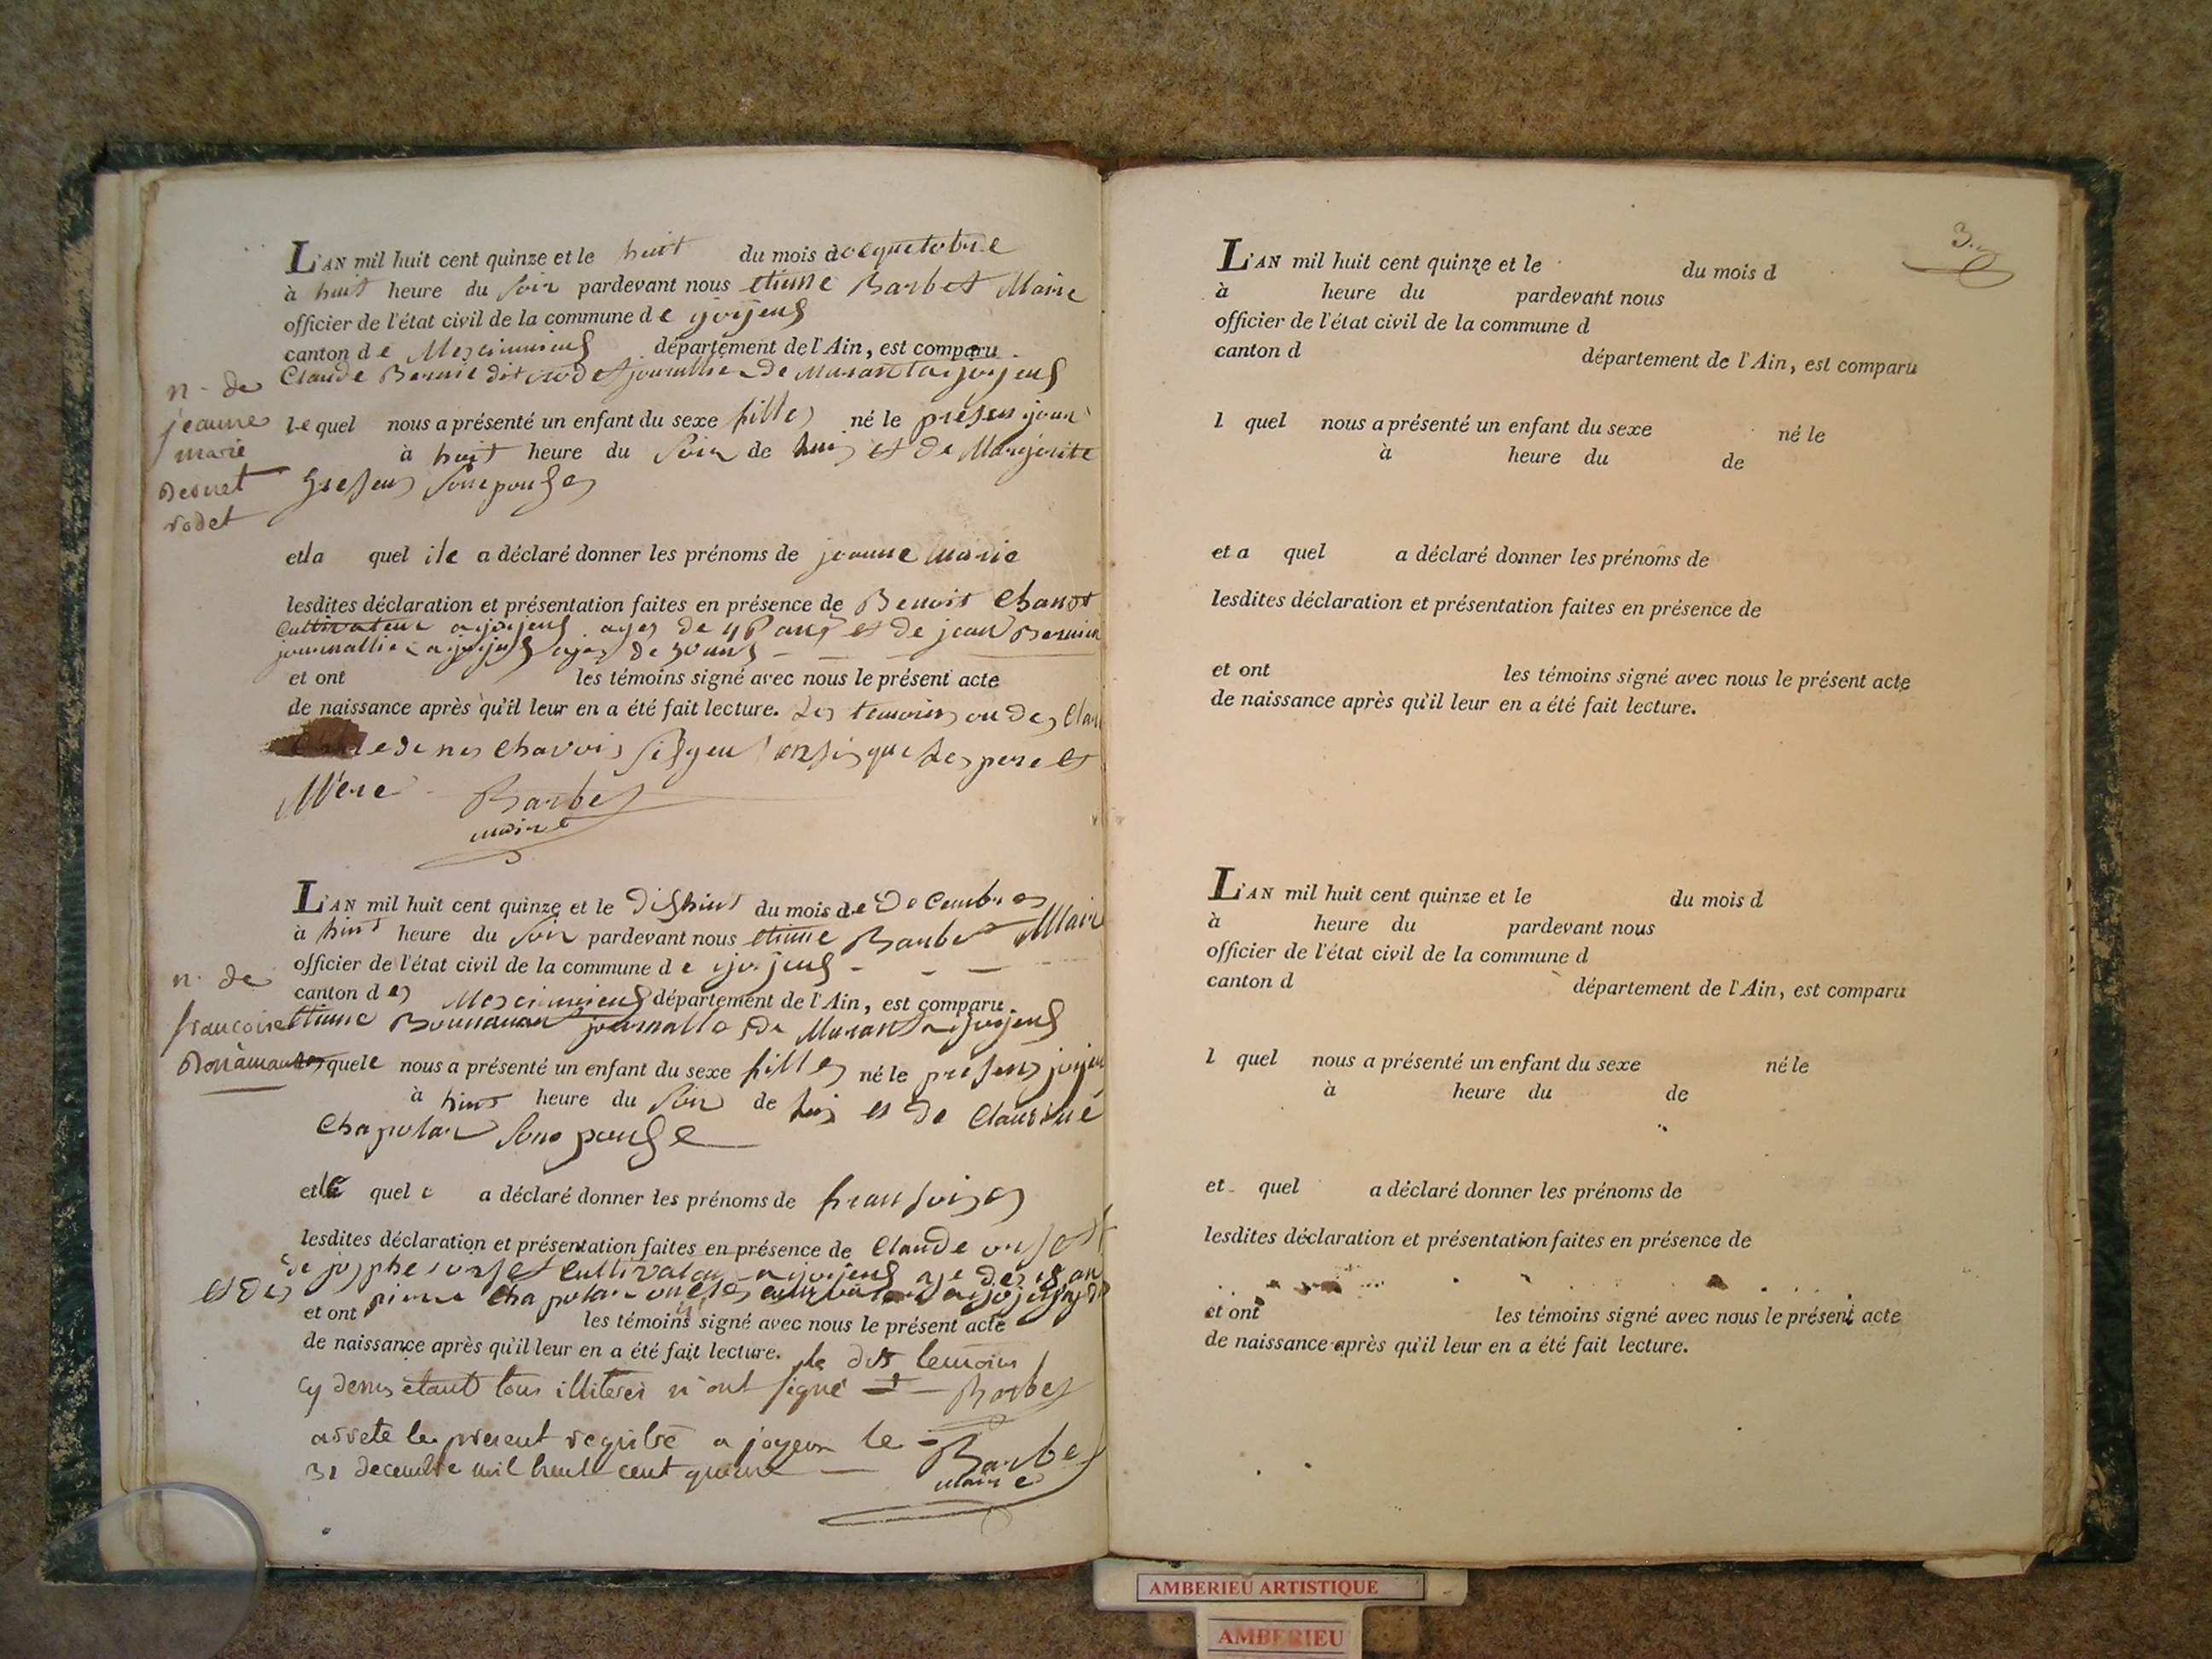 L'AN mil huit cent quinze et le huit du mois docquetobre
à huit heure du soir pardevant nous etienne Barbet Maire
officier de l'état civil de la commune de joyeus
canton de Meximieus département de l'Ain, est comparu
Claude dit journallie de joyeus
n. de
jeanne
marie
rodet
lequel nous a présenté un enfant du sexe fille né le presen jour
à huit heure du soir de lui et de Margerite
sonepouse
et la quel ile a déclaré donner les prénoms de jeanne marie
lesdites déclaration et présentation faites en présence de Benoit
Cultivateur a joyeus ages de ans et de jean
journallie a joyeus ages de 30 ans
et ont les témoins signé avec nous le présent acte
de naissance après qu'il leur en a été fait lecture. Les temoins on de
pere et
Mère Barbet
maire
L'AN mil huit cent quinze et le dishuit du mois de Decembre
à huit heure du soir pardevant nous etienne Barbet Maire
officier de l'état civil de la commune de joyeus
n. de
canton de Meximieus département de l'Ain, est comparu
francoise etienne Bonnamant journallie de a joyeus
quele nous a présenté un enfant du sexe fille né le presens
à huit heure du soir de lui et de Claudine
Chapolar sone pouse
et le quel e a déclaré donner les prénoms de fransoise
lesdites déclaration et présentation faites en présence de Claude
de josphe Cultivateur a joyeus age de an
et de pierre Chapolar oncle a joyeus
et ont les témoins signé avec nous le présent acte
de naissance après qu'il leur en a été fait lecture. le dits temoins
cy denis etant tous illiteres n'ont signé Barbet
arrete le present registre a joyeux le
31 decembre mil huit cent quinze Barbet
maire
3.
L'AN mil huit cent quinze et le du mois d
à heure du pardevant nous
officier de l'état civil de la commune d
canton d département de l'Ain, est comparu
l quel nous a présenté un enfant du sexe né le
à heure du de
et a quel a déclaré donner les prénoms de
lesdites déclaration et présentation faites en présence de
et ont les témoins signé avec nous le présent acte
de naissance après qu'il leur en a été fait lecture.
L'AN mil huit cent quinze et le du mois d
à heure du pardevant nous
officier de l'état civil de la commune d
canton d département de l'Ain, est comparu
l quel nous a présenté un enfant du sexe né le
à heure du de
et quel a déclaré donner les prénoms de
lesdites déclaration et présentation faites en présence de
et ont les témoins signé avec nous le présent acte
de naissance après qu'il leur en a été fait lecture.
AMBERIEU ARTISTIQUE
AMBERIEU